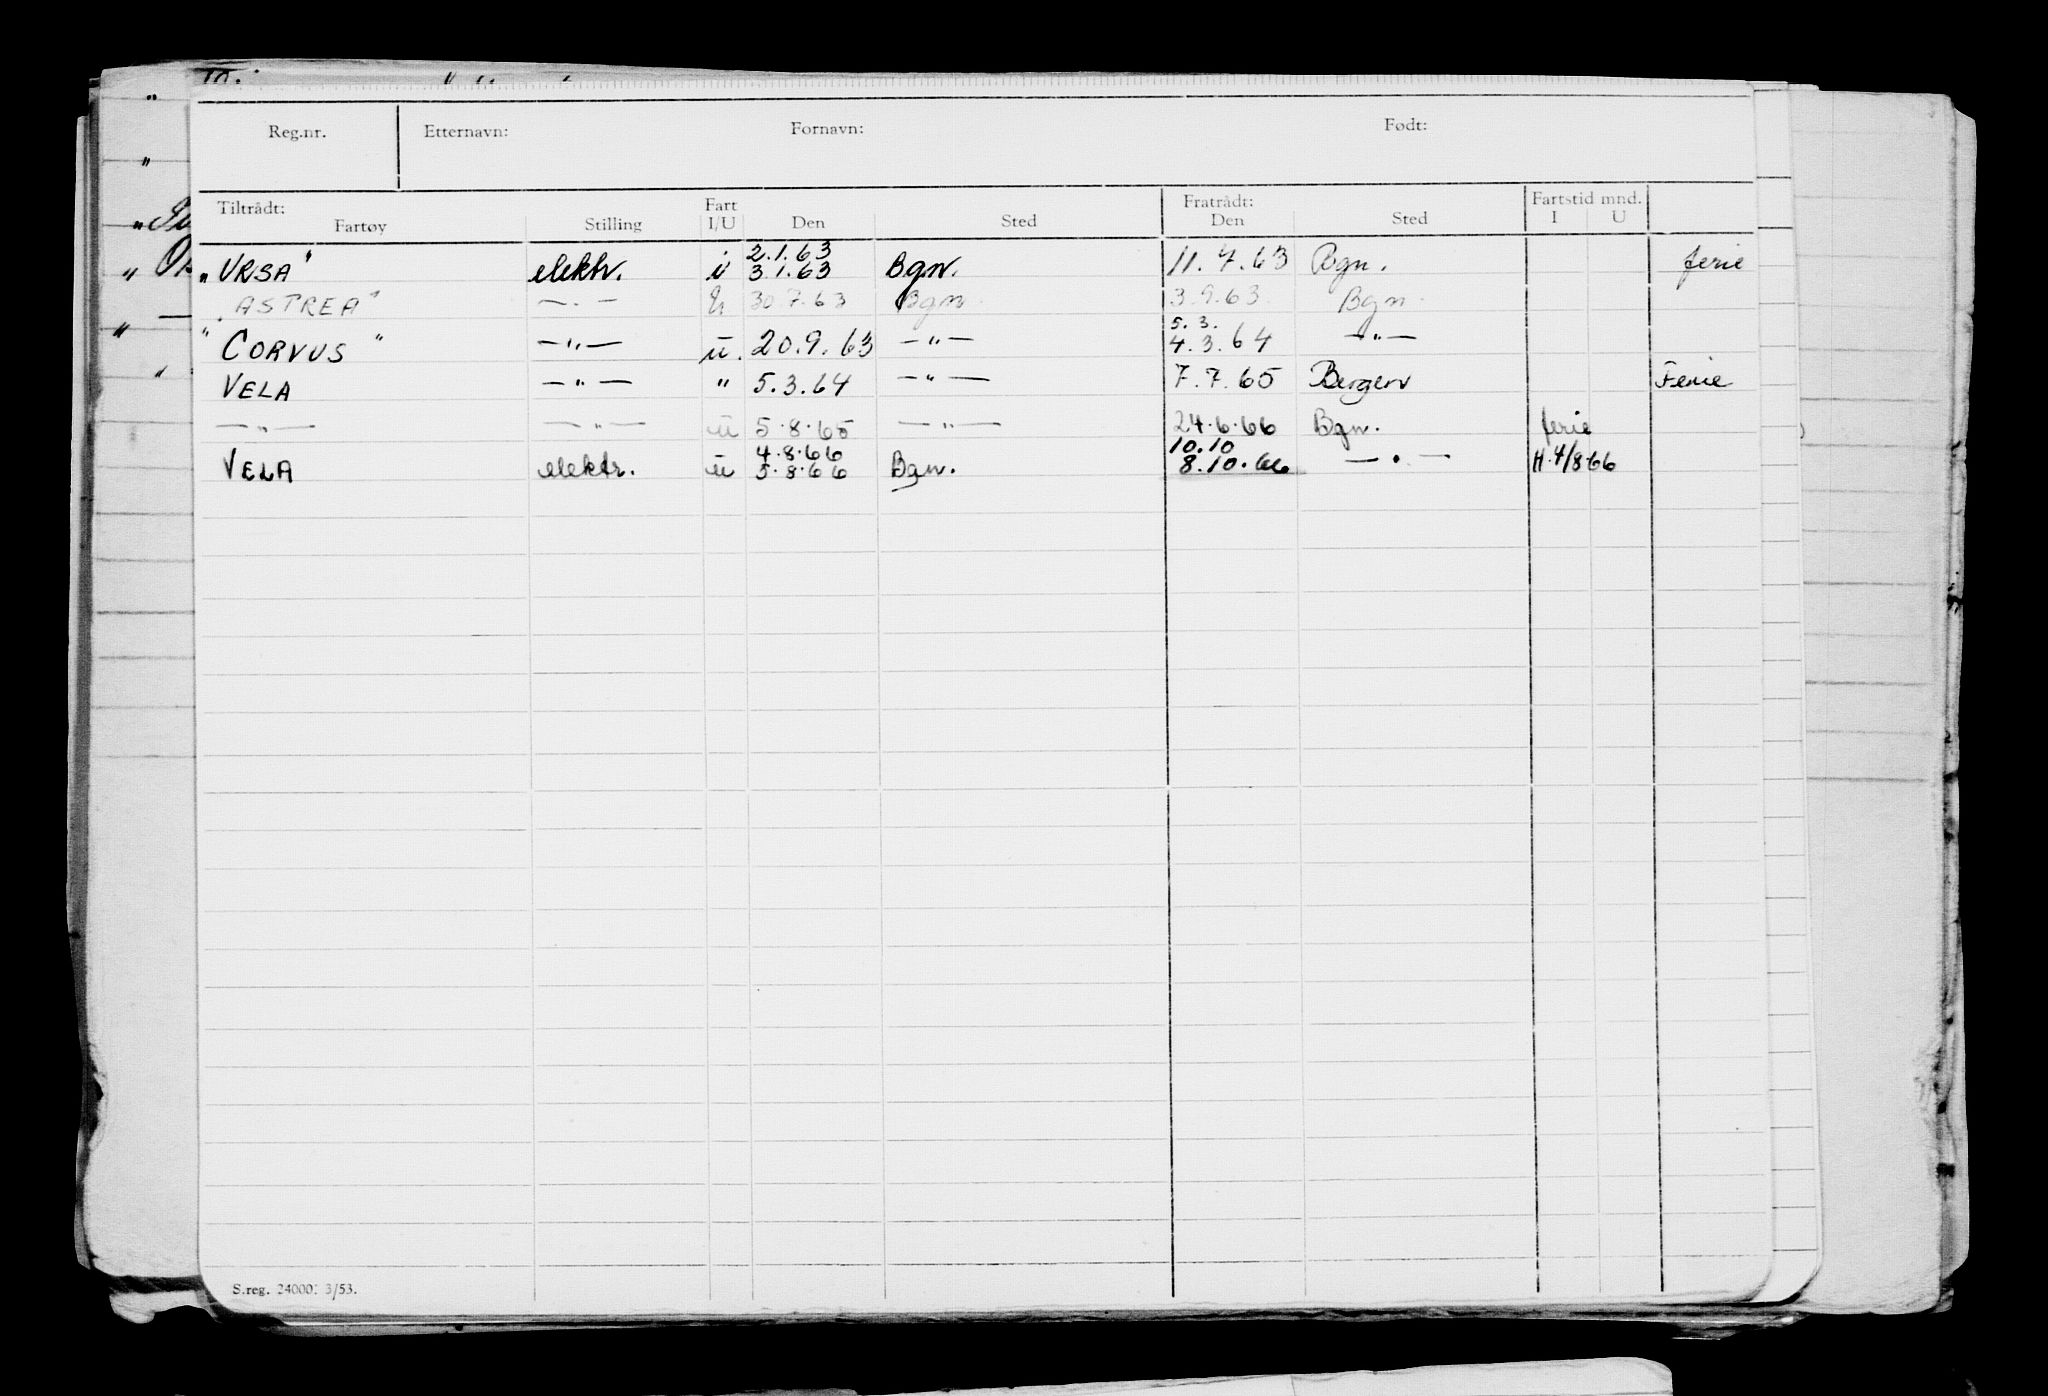 Reg.nr. Etternavn: Fornavn: Født:
Tiltrådt: Fratrådt: Fartstid mnd.
Fartøy Stilling Fart I/U Den Sted Den Sted I U
2.1.63
"URSA" elektr. u 3.1.63 Bgn. 11.7.63 Bgn. ferie
"ASTREA" —"— u 30.7.63 Bgn 3.9.63 Bgn
5.3.
"CORVUS" —"— u. 20.9.63 —"— 4.3.64 —"—
VELA —"— " 5.3.64 —"— 7.7.65 Bergen Ferie
—"— —"— u 5.8.65 —"— 24.6.66 Bgn. ferie
4.8.66 10.10
VELA elektr. u 5.8.66 Bgn. 8.10.66 —"— H.4/8.66
S.reg. 24000. 3/53.